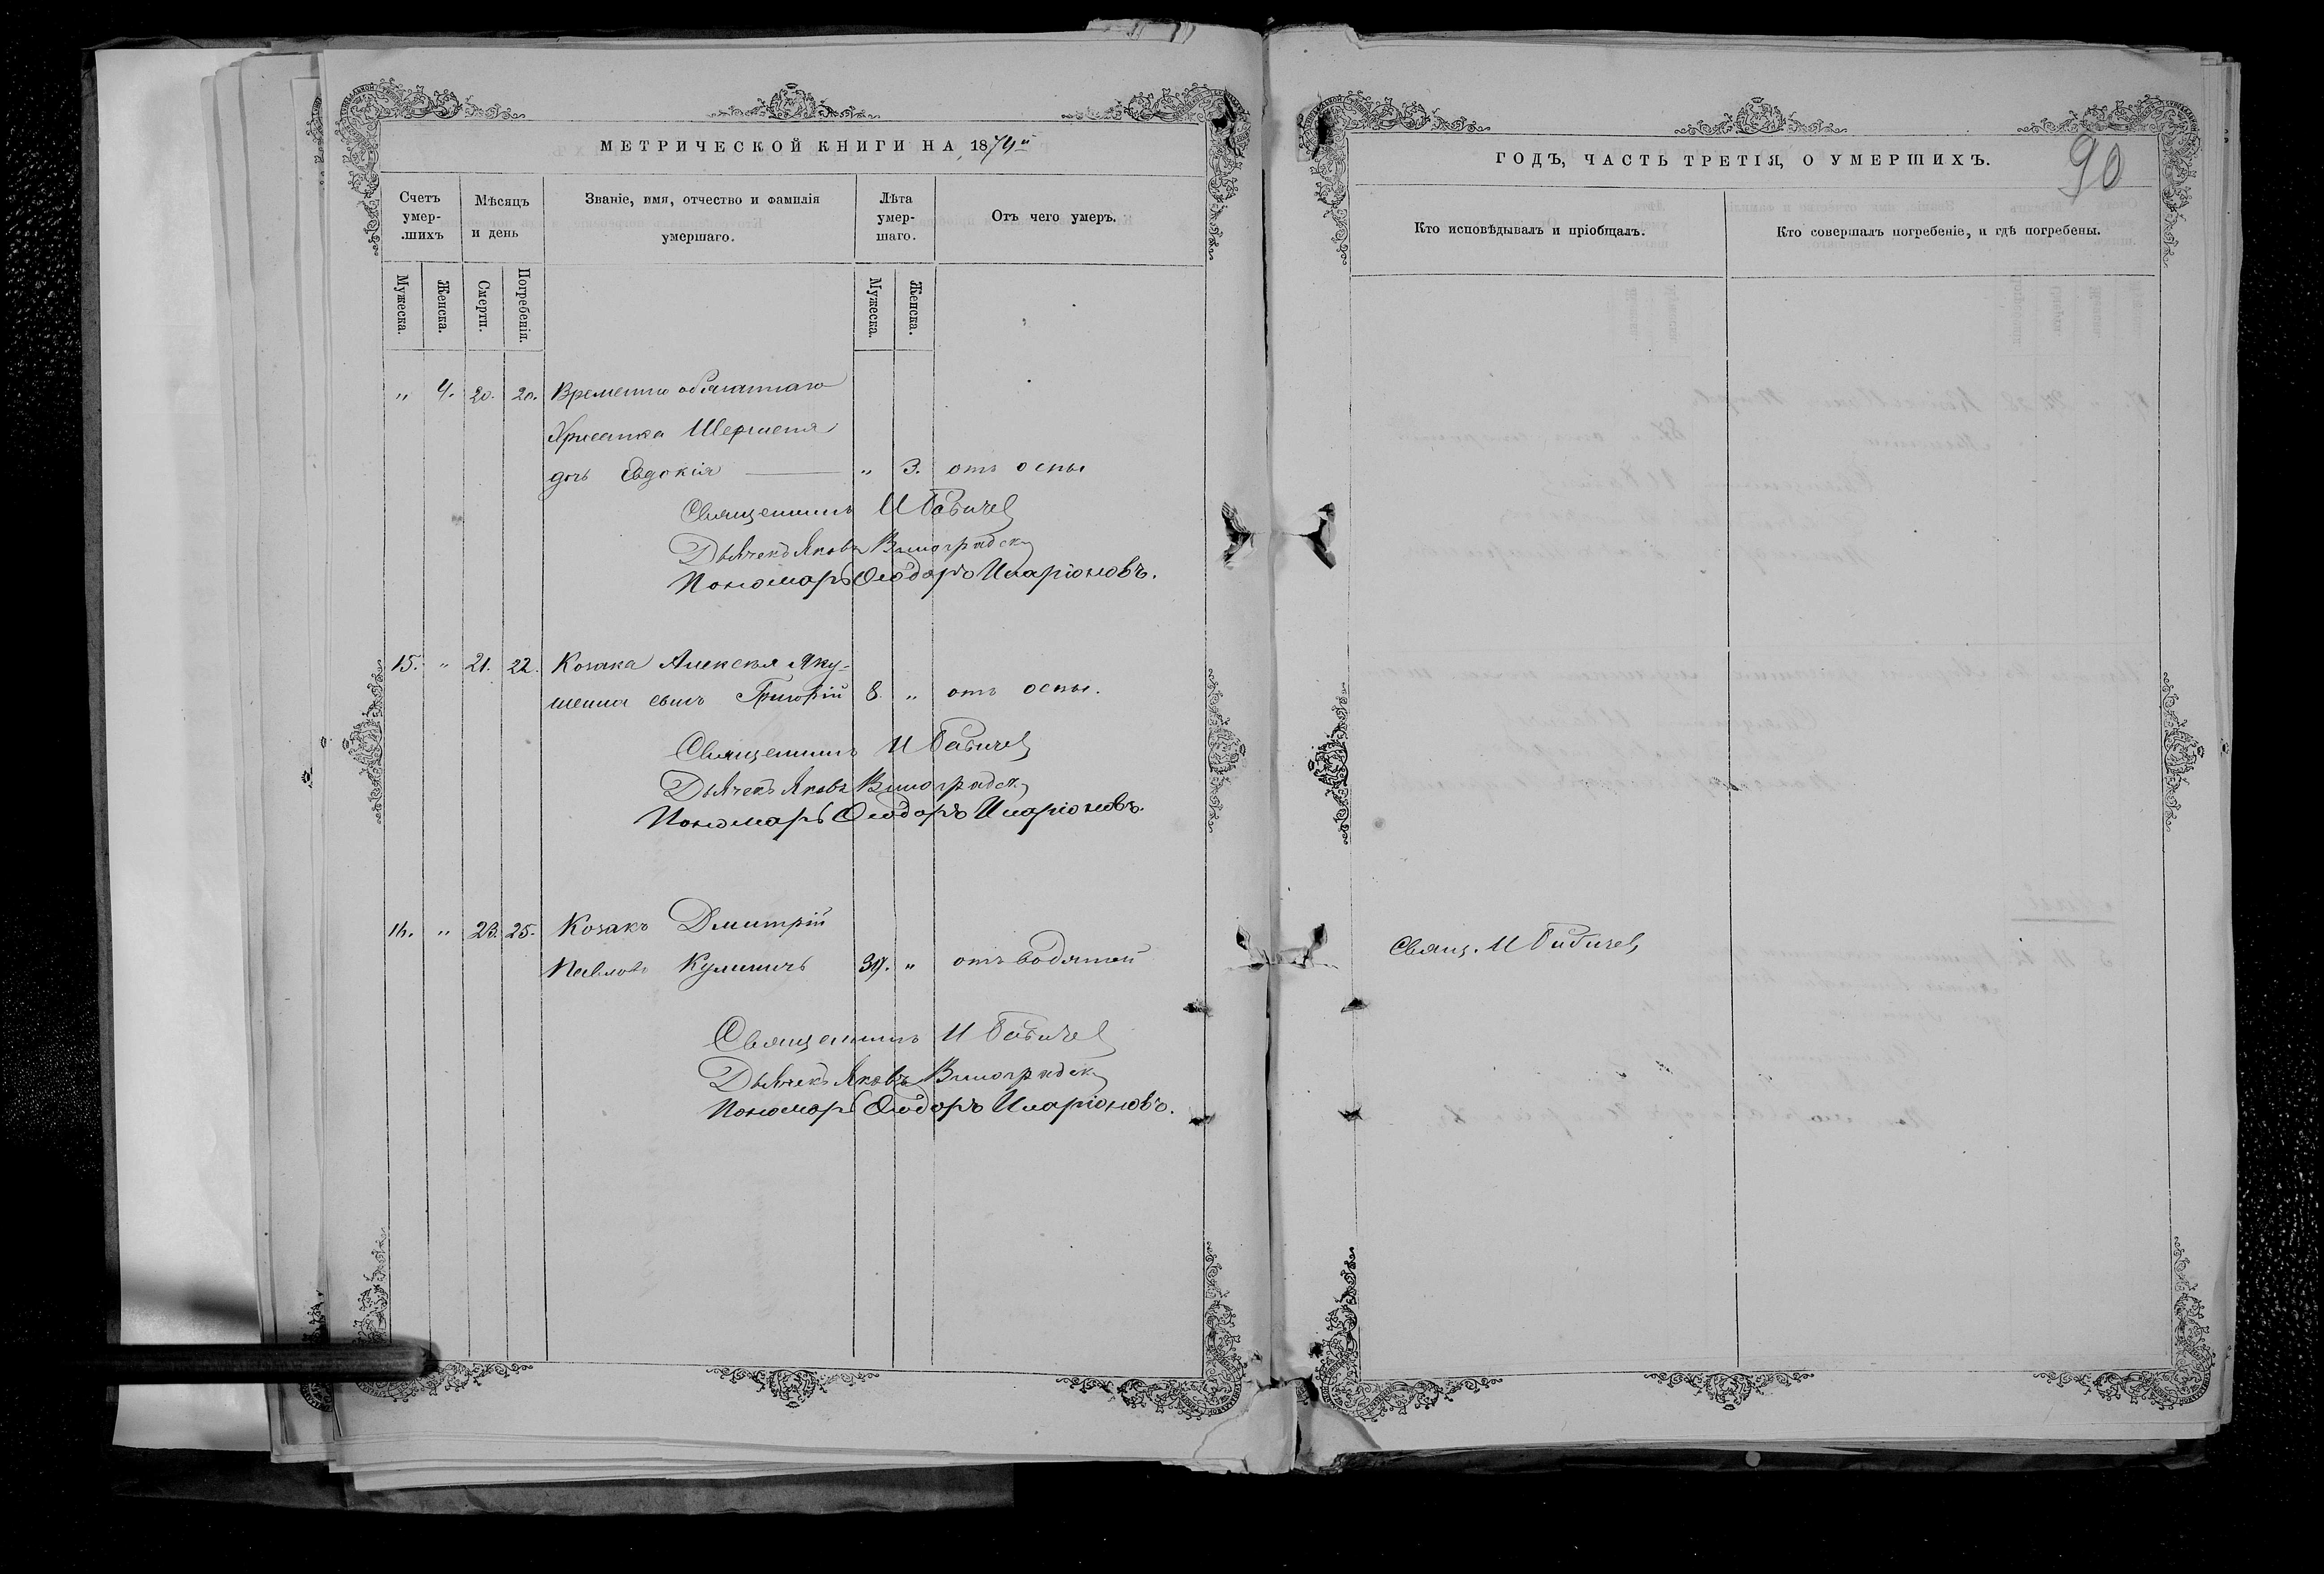 МЕТРИЧЕСКОЙ КНИГИ НА 1874й
Счетъ умер-шихъ
Мѣсяцъ и день
Званіе, имя, отчество и фамилія умершаго.
Лѣта умер-шаго.
Отъ чего умеръ.
Мужеска.
Женска.
Смерти.
Погребенія.
Мужеска.
Женска.
" 4. 20. 20. Временно обязаннаго
Хрисанка Шершеня
дочь Евдокія " 3. отъ оспы
Священникъ И Бабичев
Дьячекъ Яковъ Виноградск
Пономарь Ѳеодоръ Иларіоновъ.
15. " 21. 22. Козака Алексѣя Яку-
шенка сынъ Григорій 8. " отъ оспы.
Священникъ И Бабичев
Дьячекъ Яковъ Виноградск
Пономарь Ѳеодоръ Иларіоновъ.
16. " 23. 25. Козакъ Дмитрій
Павловъ Кулиничъ 39. " отъ водяной
Священникъ И Бабичев
Дьячекъ Яковъ Виноградск
Пономарь Ѳеодоръ Иларіоновъ.
ГОДЪ, ЧАСТЬ ТРЕТІЯ, О УМЕРШИХЪ.
90
Кто исповѣдывалъ и пріобщалъ.
Кто совершалъ погребеніе, и гдѣ погребены.
Свящ. И Бабичев